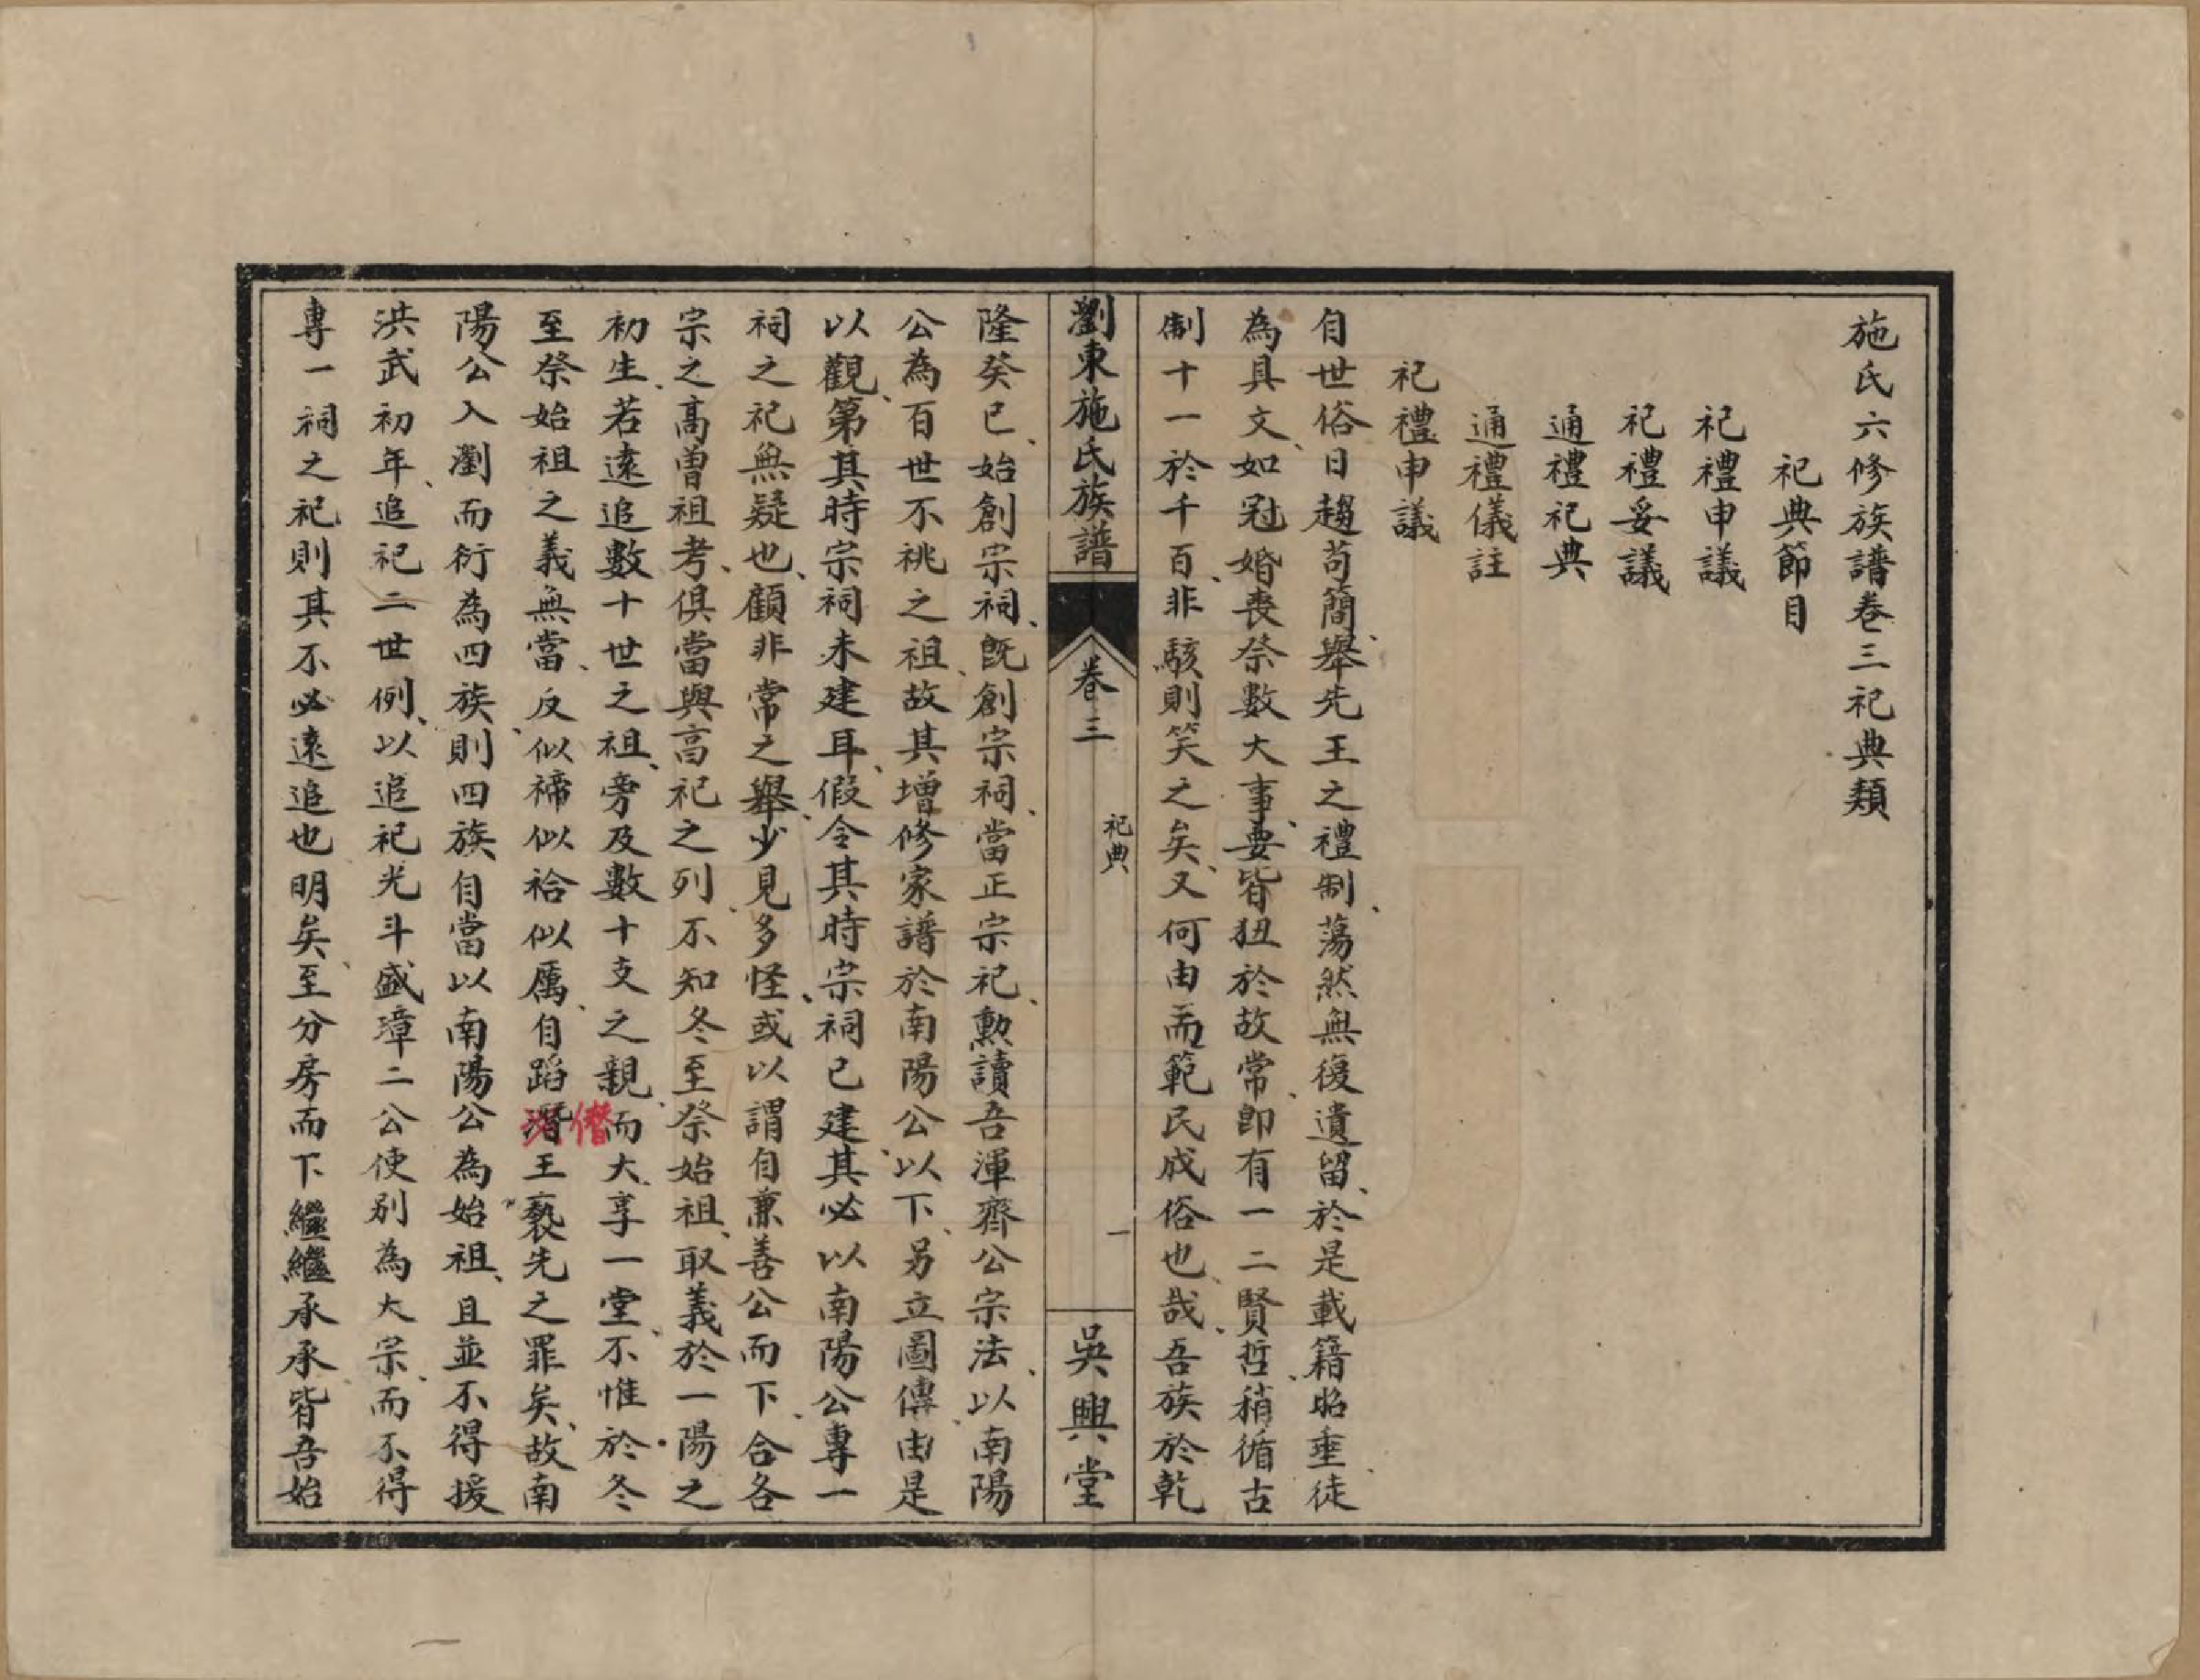 施氏六修族譜卷三祀典類
祀典節目
祀禮申議
祀禮妥議
通禮祀典
通禮儀註
祀禮申議
自世俗日趨苟簡舉先王之禮制蕩然無復遺留於是載籍昭垂徒
為具文如冠婚喪祭數大事要皆狃於故常即有一二賢哲稍循古
制十一於千百非駭則笑之矣又何由而範民成俗也哉吾族於乾
瀏東施氏族譜 卷三 祀典 一 吳興堂
隆癸巳始創宗祠既創宗祠當正宗祀勲讀吾渾齊公宗法以南陽
公為百世不祧之祖故其增修家譜於南陽公以下另立圖傳由是
以觀第其時宗祠未建耳假令其時宗祠已建其必以南陽公專一
祠之祀無疑也顧非常之舉少見多怪或以謂自兼善公而下合各
宗之高曾祖考俱當與高祀之列不知冬至祭始祖取義於一陽之
初生若遠追數十世之祖旁及數十支之親而大享一堂不惟於冬
至祭始祖之義無當反似禘似祫似厲自蹈僭王褻先之罪矣故南
陽公入瀏而衍為四族則四族自當以南陽公為始祖且並不得援
洪武初年追祀二世例以追祀光斗盛璋二公使別為大宗而不得
專一祠之祀則其不必遠追也明矣至分房而下繼繼承承皆吾始